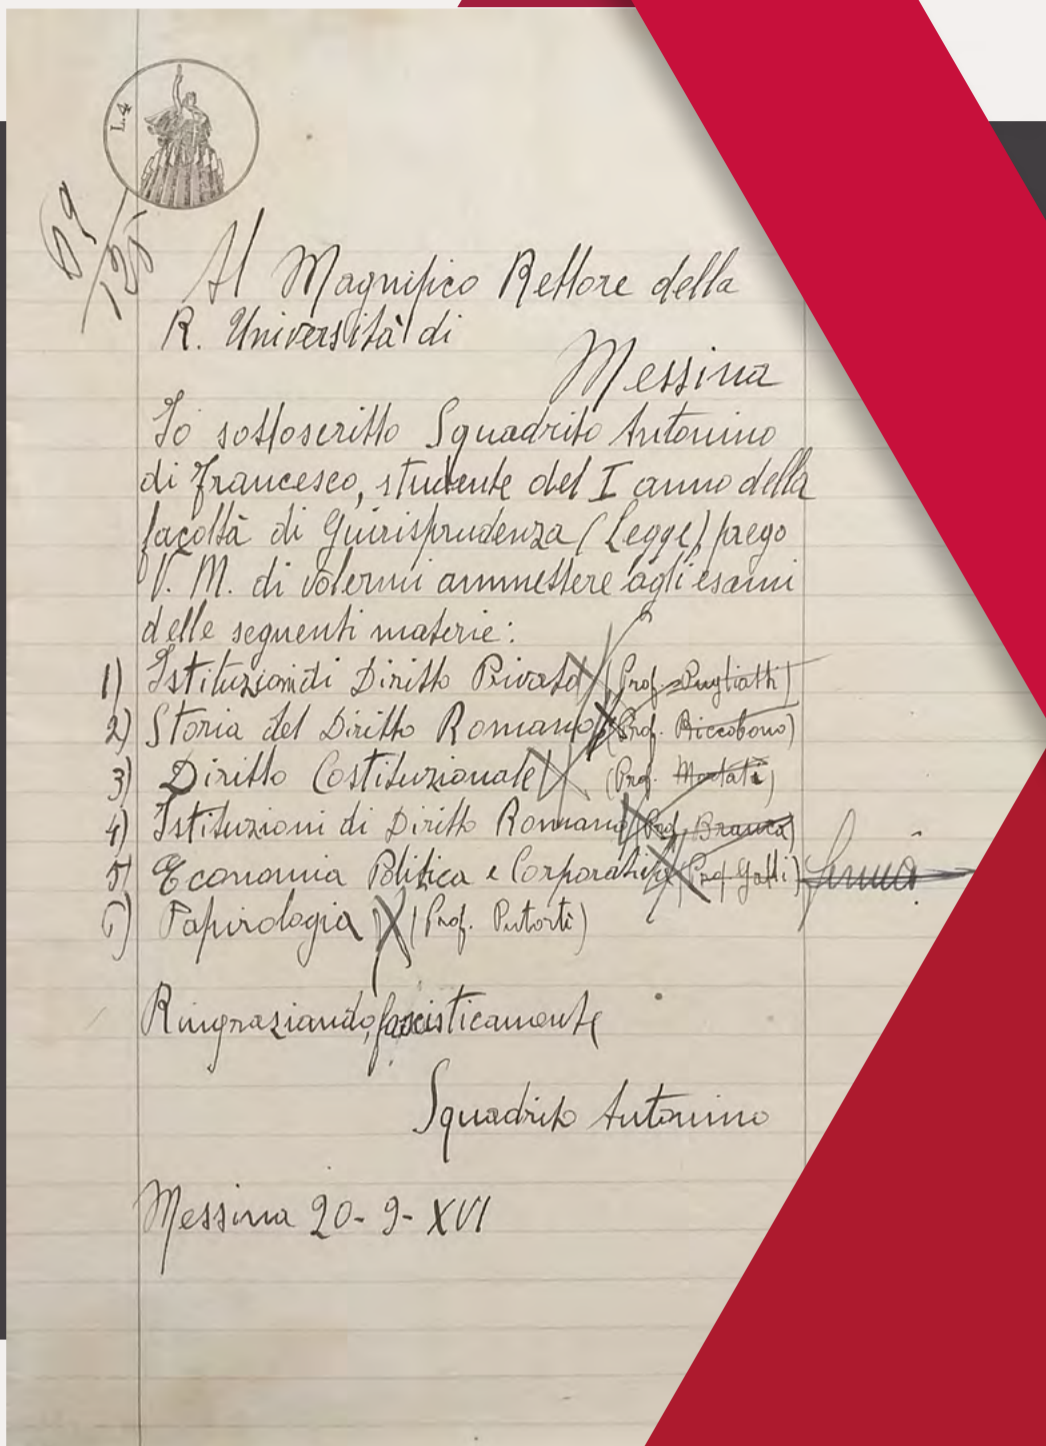 L.4
69
125
Al Magnifico Rettore della
R. Università di
Messina
Io sottoscritto Squadrito Antonino
di Francesco, studente del I anno della
facoltà di Giurisprudenza (Legge) prego
V. M. di volermi ammettere agli esami
delle seguenti materie:
1) Istituzioni di Diritto Privato (Prof. Pugliatti)
2) Storia del Diritto Romano (Prof. Riccobono)
3) Diritto Costituzionale (Prof. Mortati)
4) Istituzioni di Diritto Romano (Prof. Branca)
5) Economia Politica e Corporativa (Prof. Galli)
6) Papirologia (Prof. Putortì)
Ringraziando, fascisticamente
Squadrito Antonino
Messina 20-9-XVI